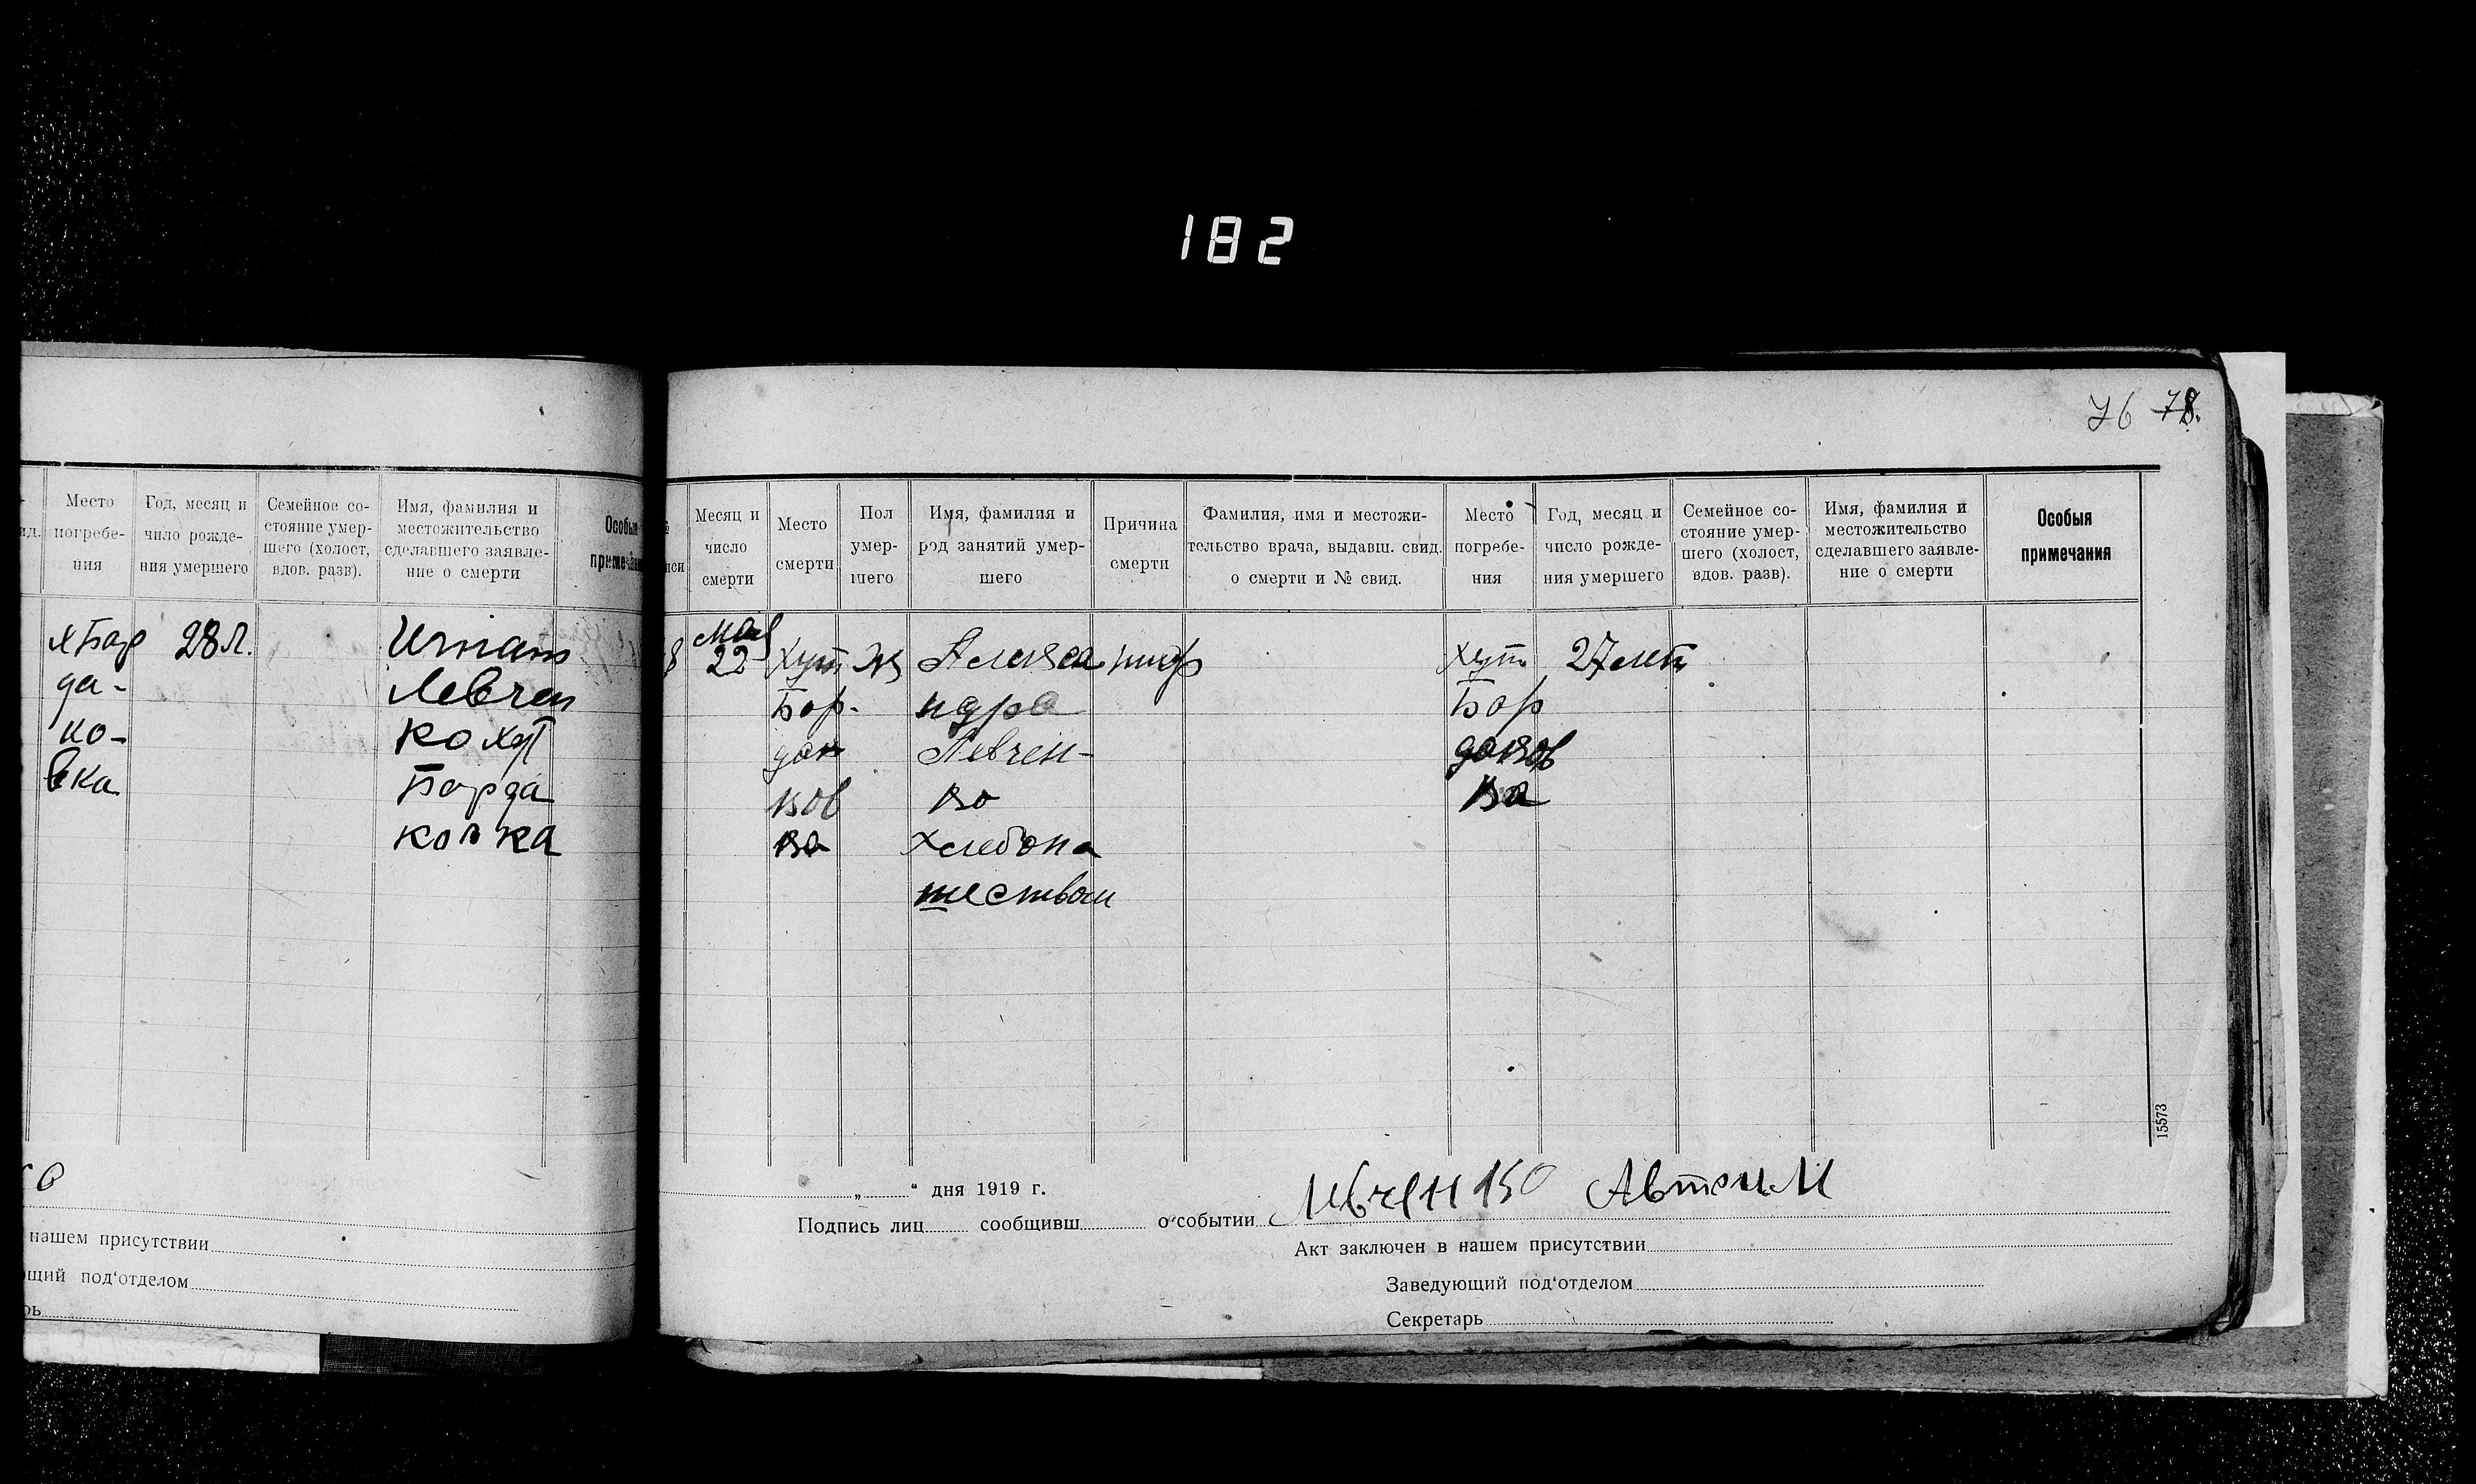 182
76 78.
Место погребе- ния
Год, месяц и чило рожде- ния умершего
Семейное со- стояние умер- шего (холост, вдов. разв).
Имя, фамилия и местожительство сделавшего заявле- ние о смерти
Особыя
х Бор
да-
ко-
вка
28 л.
Левчен
ко хут
Борда
ковка
нашем присутствии
щий под‘отделом
Месяц и число смерти
Место смерти
Пол умер- шего
Имя, фамилия и род занятий умер- шего
Причина смерти
Фамилия, имя и местожи- тельство врача, выдавш. свид. о смерти и № свид.
Место погребе- ния
Год, месяц и число рожде- ния умершего
Семейное со- стояние умер- шего (холост, вдов. разв).
Имя, фамилия и местожительство сделавшего заявле- ние о смерти
Особыя примечания
8
мая
22
Хут
Бор-
дак
ков
ка
ж
Алекса
ндра
Левчен-
ко
хлебопа
шеством
тиф
Хут
Бор
даков
ка
27 лет
15573
„ “ дня 1919 г.
Подпись лиц сообщивш о событии Левченко Автоном
Акт заключен в нашем присутствии
Заведующий под‘отделом
Секретарь